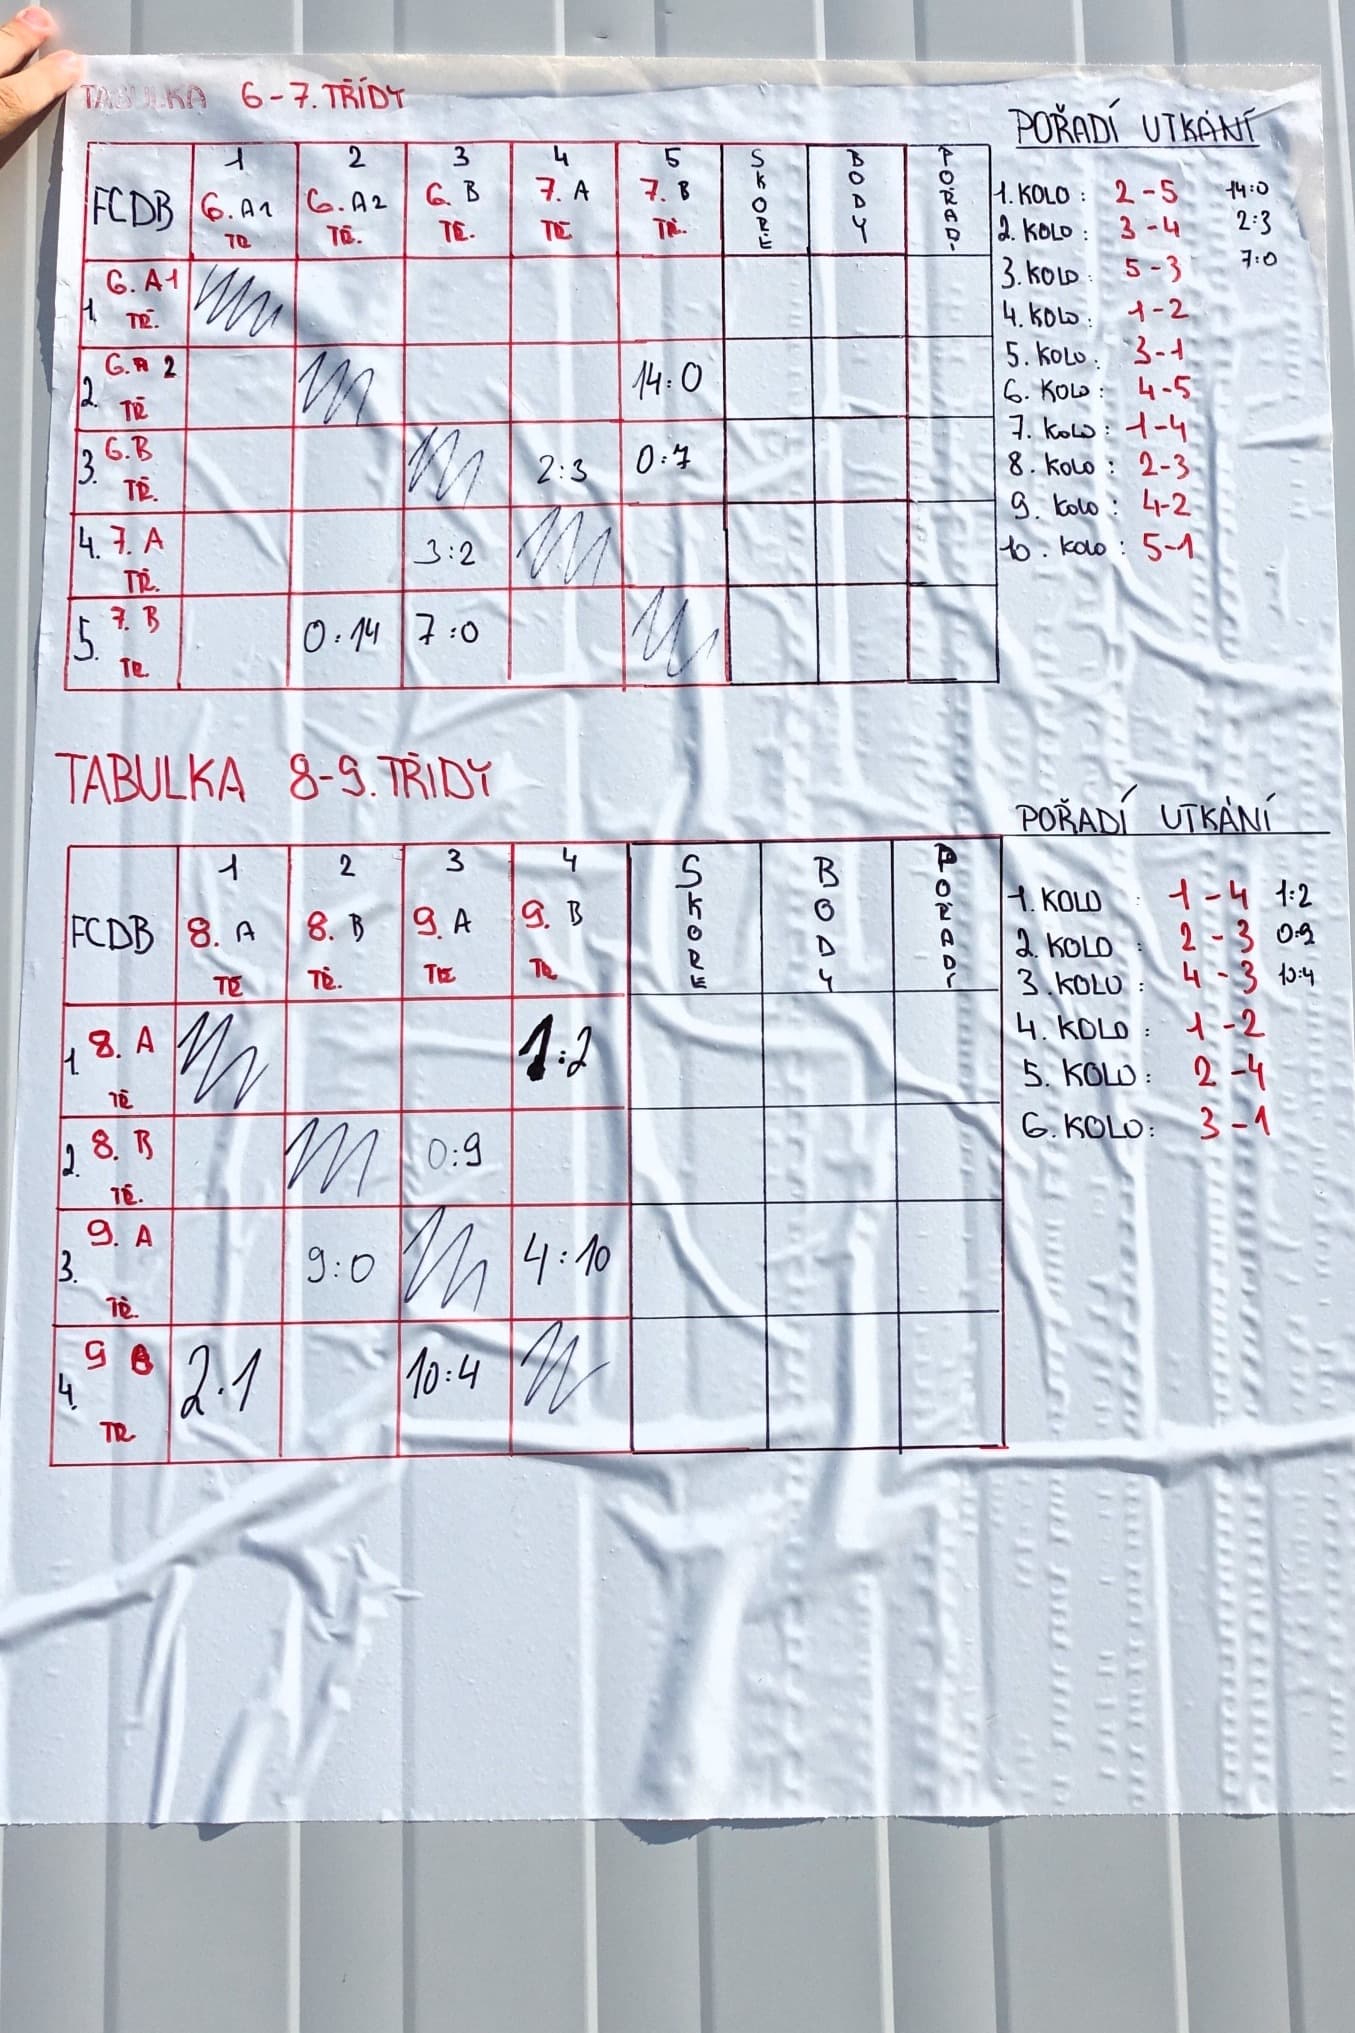 TABULKA 6-7. TŘÍDY
POŘADÍ UTKÁNÍ
1 2 3 4 5 SKÓRE BODY POŘADÍ
FCDB 6. A1 6. A2 6. B 7. A 7. B
TŘ TŘ. TŘ. TŘ TŘ.
1. KOLO : 2-5 14:0
2. KOLO : 3-4 2:3
3. KOLO : 5-3 7:0
4. KOLO : 1-2
5. KOLO : 3-1
6. KOLO : 4-5
7. KOLO : 1-4
8. KOLO : 2-3
9. KOLO : 4-2
10. KOLO : 5-1
1. 6. A1 TŘ.
2. 6. A 2 TŘ 14:0
3. 6. B TŘ. 2:3 0:7
4. 7. A TŘ. 3:2
5. 7. B TŘ. 0:14 7:0
TABULKA 8-9. TŘÍDY
POŘADÍ UTKÁNÍ
1 2 3 4 SKÓRE BODY POŘADÍ
FCDB 8. A 8. B 9. A 9. B
TŘ TŘ. TŘ TŘ
1. KOLO 1-4 1:2
2. KOLO : 2-3 0:9
3. KOLO : 4-3 10:4
4. KOLO : 1-2
5. KOLO : 2-4
6. KOLO : 3-1
1. 8. A TŘ 1:2
2. 8. B TŘ. 0:9
3. 9. A TŘ. 9:0 4:10
4. 9 B TŘ 2:1 10:4